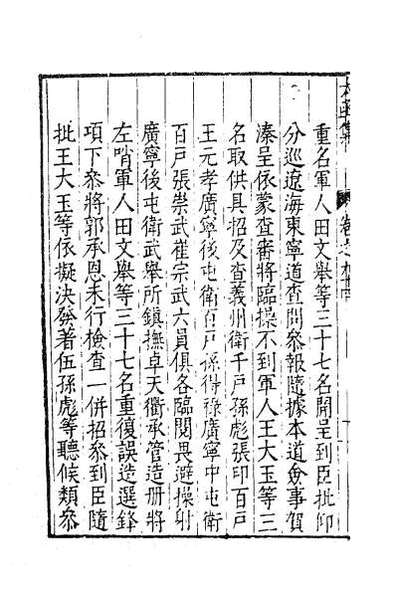 重名軍人田文舉等三十七名開呈到臣批仰
分巡遼海東寧道查問叅報隨據本道僉事賀
溱呈依蒙查審將臨操不到軍人王大玉等三
名取供具招及查義州衛千戶孫彪張印百戶
王元孝廣寧後屯衛百戶孫得祿廣寧中屯衛
百戶張崇武崔宗武六員俱各臨閱畏避操射
廣寧後屯衛武舉所鎮撫卓天衢承管造册將
左哨軍人田文舉等三十七名重復誤造選鋒
項下叅將郭承恩未行檢查一併招叅到臣隨
批王大玉等依擬決發著伍孫彪等聽候類叅